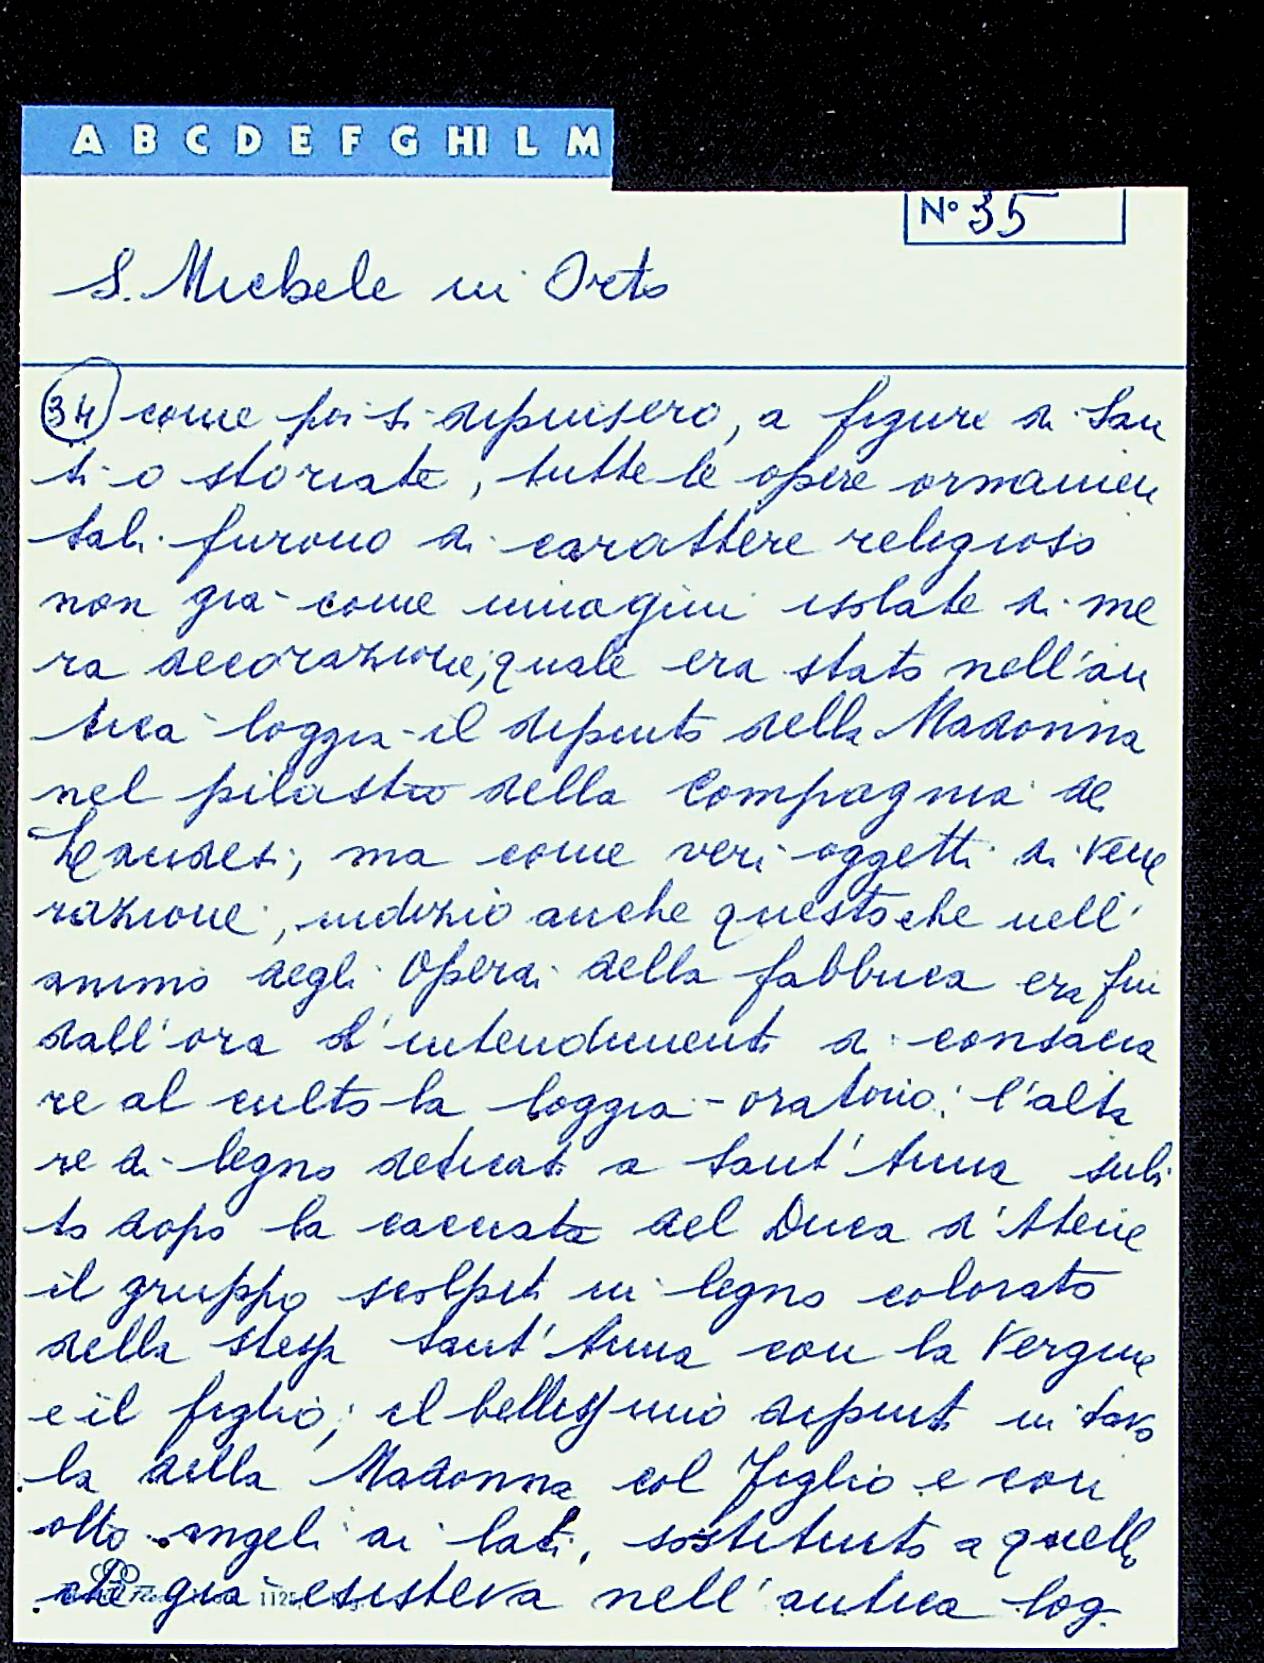 A B C D E F G HI L M
N° 35
S. Michele in Orto
34 come poi si dipinsero, a figure di San
ti o storiate, tutte le opere ornamen
tali furono di carattere religioso
non già come immagini isolate di me
ra decorazione, quale era stato nell'an
tica loggia il dipinto della Madonna
nel pilastro della Compagnia de
Laudesi, ma come veri oggetti di vene
razione, indizio anche questo che nell'
animo degli Operai della fabbrica era fin
dall'ora d'intendimenti di consacra
re al culto la loggia-oratorio: l'alta
re di legno dedicato a Sant'Anna subi
to dopo la cacciata del Duca d'Atene
il gruppo scolpito in legno colorato
della stessa Sant'Anna con la Vergine
e il figlio; il bellissimo dipinto in tavo
la della Madonna col Figlio e con
otto angeli ai lati, sostituito a quello
che già esisteva nell'antica log.